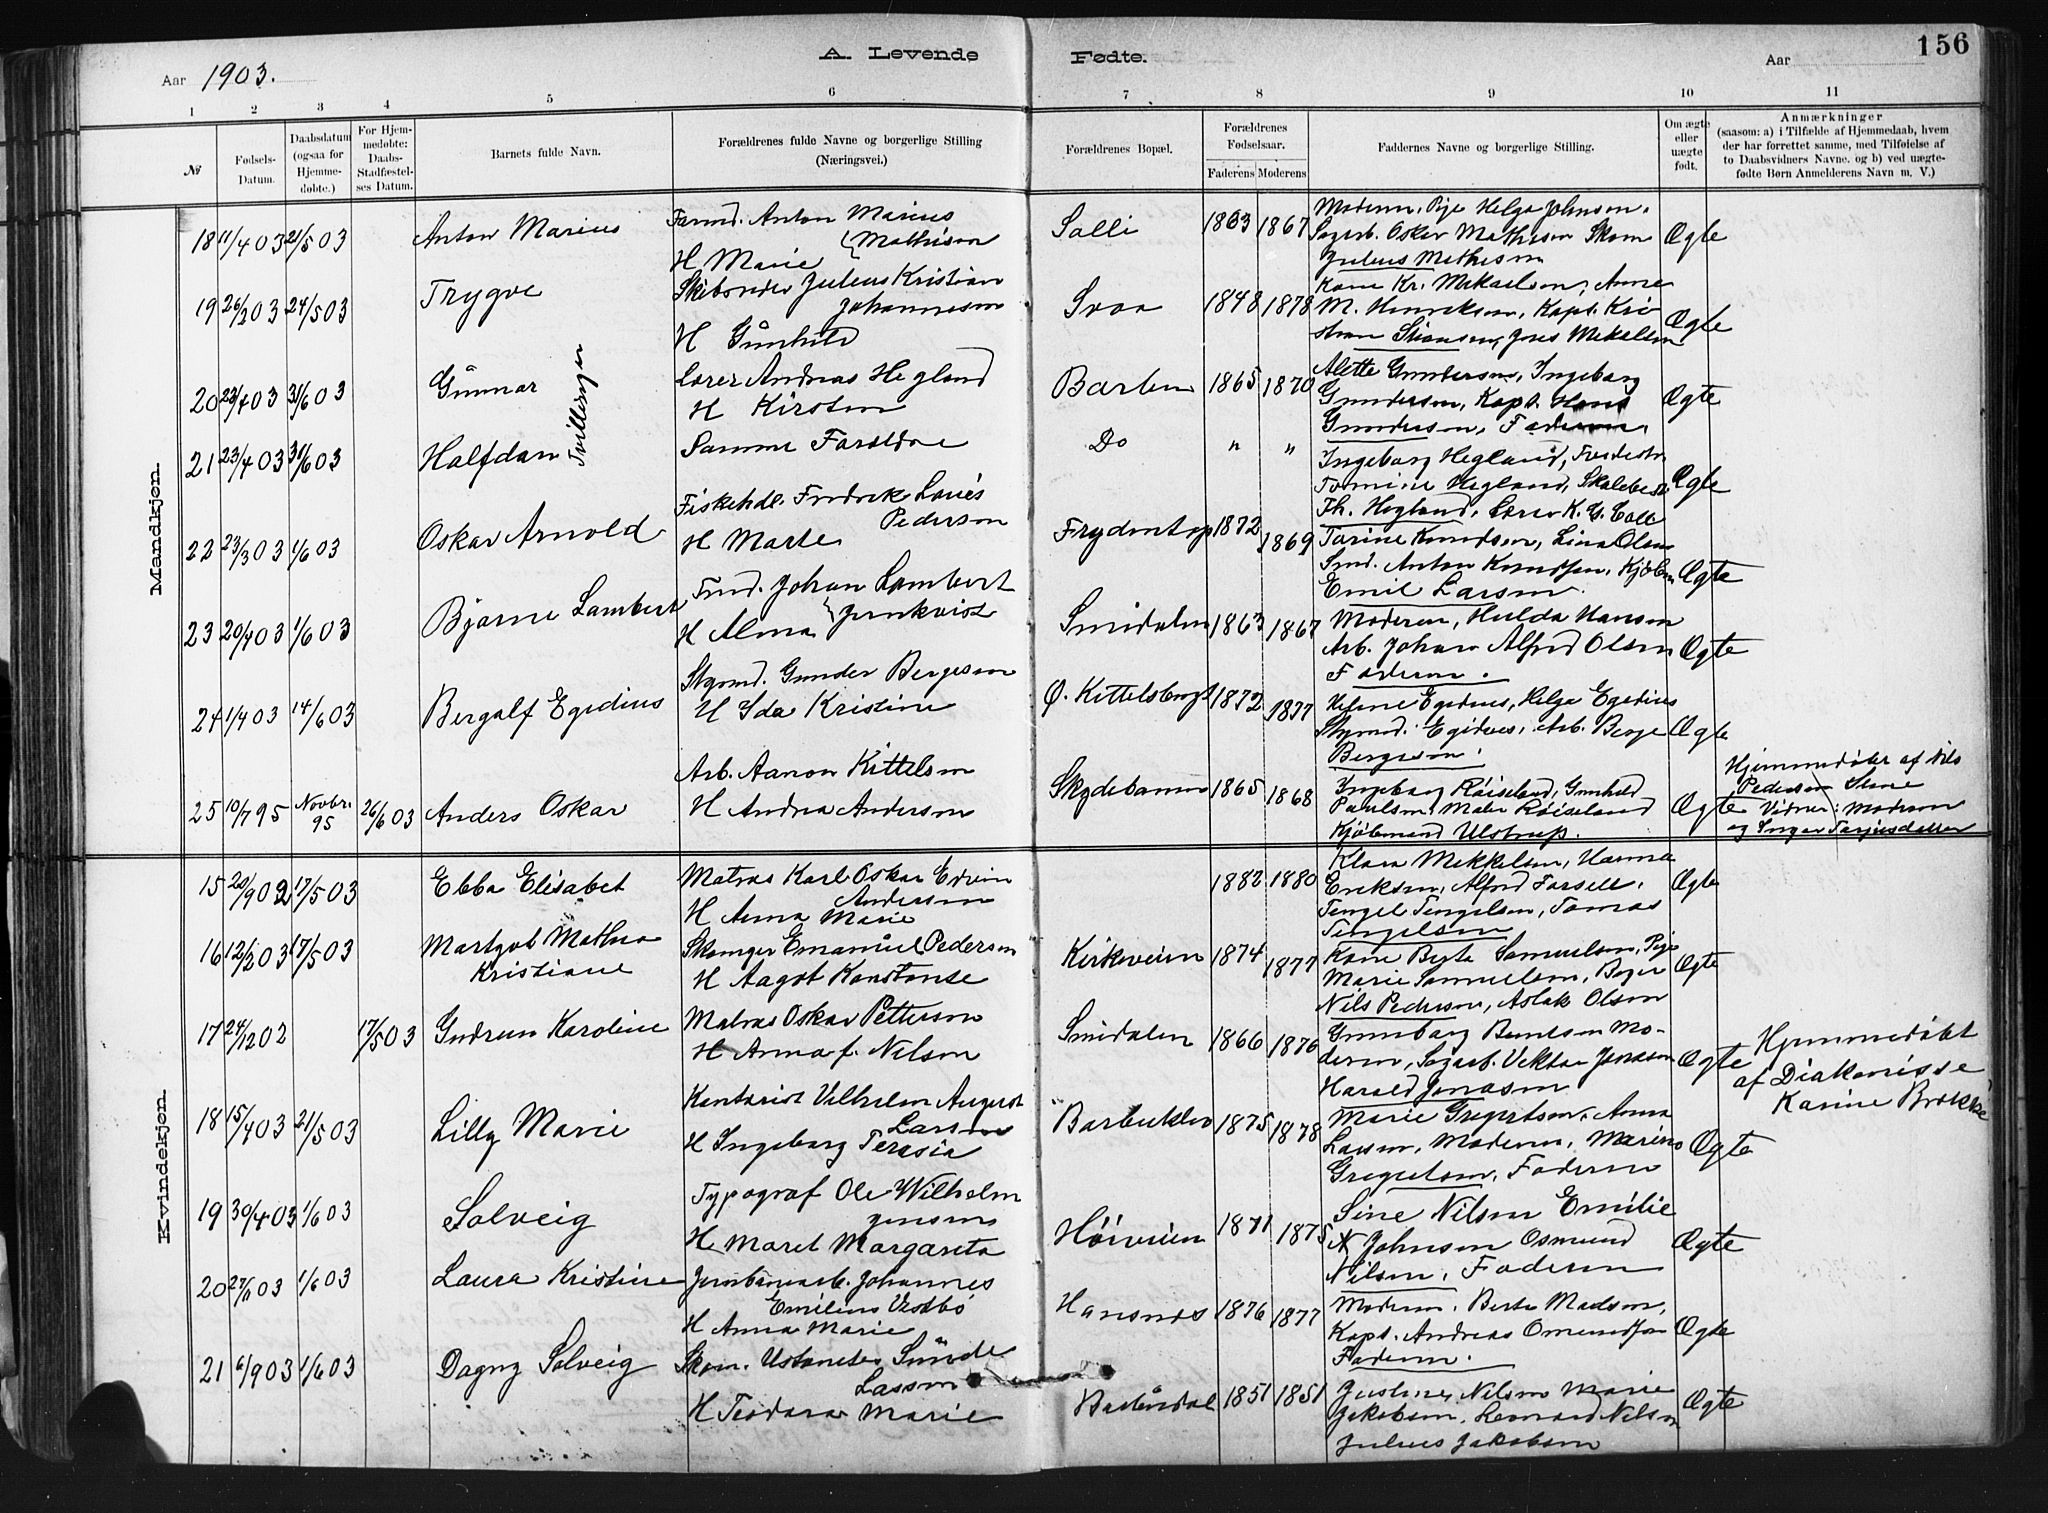 A. Levende Fødte.
156
Aar 1903.
Aar
1 2 3 4 5 6 7 8 9 10 11
№
Fødsels-Datum.
Daabsdatum (ogsaa for Hjemmedøbte.)
For Hjemmedøbte: Daabs-Stadfæstelses Datum.
Barnets fulde Navn.
Forældrenes fulde Navne og borgerlige Stilling (Næringsvei.)
Forældrenes Bopæl.
Forældrenes Fødselsaar.
Faderens Moderens
Faddernes Navne og borgerlige Stilling.
Om ægte eller uægte født.
Anmærkninger
(saasom: a) i Tilfælde af Hjemmedaab, hvem der har forrettet samme, med Tilføielse af to Daabsvidners Navne. og b) ved uægtefødte Børn Anmelderens Navn m. V.)
Mandkjøn.
18 11/4 03 21/5 03 Anton Marius
Anton Marius
Mathisen
H Marie
Salli 1863 1867
Moderen, Pige Helga Johnsen,
Sagarb. Oskar Mathisen Skom
Julius Mathisen
Ægte
19 26/2 03 24/5 03 Trygve
Skibsreder Julius Kristian
Johannesen
H Gunhild
1848 1878
Kone Kr. Mikaelsen, Anna
M. Henriksen, Kapt. Kri
Ægte
20 23/4 03 31/6 03 Gunnar
Tvillinger
Lærer Andreas Hegland
H Kirsten
Barbu 1865 1870
Alette Gundersen, Ingeborg
Gundersen, Kapt. Hans
Gundersen, Faderen.
Ægte
21 23/4 03 31/6 03 Halfdan
Samme Forældre
Do " "
Ingeborg Hegland,
Hegland,
Th. Hegland, Lærer K. G.
Ægte
22 23/3 03 1/6 03 Oskar Arnold
Fiskehdl. Fredrik Louis
Pedersen
H Marte
1872 1869
Tarine Knudsen, Lina Olsen
Smd. Anton Knudsen, Kjøbm
Emil Larsen.
Ægte
23 20/4 03 1/6 03 Bjarne Lambert
Johan Lambert
Jernkvist
H Alma
Smidalen 1863 1867
Moderen, Hulda Hansen
Arb. Johan Alfred Olsen
Faderen.
Ægte
24 1/4 03 14/6 03 Bergulf Egedius
Stgmd. Gunder Bergesen
H Ida Kristine
Ø. Kittelsbugt 1872 1877
Egedius, Helga Egedius
Egidius, Arb. Berge
Bergesen.
Ægte
25 10/7 95 Novbr. 95 26/6 03 Anders Oskar
Arb. Aanon Kittelsen
H Andrea Andersen
Skydebanen 1865 1868
Ingeborg Røiseland, Gunhild
Paulsen, Maler Røiseland
Kjøbmand Ulstrup.
Ægte
Hjemmedøbt af Nils
Pedersen
Vidner: Moderen
og Inger Terjesdatter
Kvindekjøn.
15 20/9 02 17/5 03 Ebba Elisabet
Matros Karl Oskar Edvin
Andersen
H Anna Marie
1882 1880
Klara Mikkelsen, Hanna
Eriksen, Alfred Forsell,
Tengel Tengelsen, Tomas
Tengelsen
Ægte
16 12/2 03 17/5 03 Margot Mathea
Kristiane
Skomger Emanuel Pedersen
H Aagot Konstanse
Kirkeveien 1874 1877
Kone Berte Samuelsen, Pige
Marie Samuelsen, Bager
Nils Pedersen, Aslak Olsen
Ægte
17 24/12 02 17/5 03 Gudrun Karoline
Matros Oskar Petterson
H Anna f. Nilsen
Smidalen 1866 1876
Gunnborg Berntsen Mo-
deren, Sagarb. Vektor Jonasen
Harald Jonasen
Ægte
Hjemmedøbt
af Diakonisse
Karine Brække
18 15/4 03 21/5 03 Lilly Marie
Kontorist Vilhelm August
Larsen
H Ingeborg Teresia
1875 1878
Marie Gregertsen, Anna
Larsen, Moderen, Marius
Gregertsen, Faderen
Ægte
19 30/4 03 1/6 03 Solveig
Typograf Ole Wilhelm
Jensen
H Maret Margareta
Høiveien 1871 1875
Sine Nilsen Emilie
Johnsen Osmund
Nilsen, Faderen
Ægte
20 27/11 03 1/6 03 Laura Kristine
Jernbanearb. Johannes
Emilius Vestbø
H Anna Marie
Hansnes 1876 1877
Moderen, Berte Madsen,
Kapt. Andreas Omundsen
Faderen.
Ægte
21 6/9 03 1/6 03 Dagny Solveig
Skom. Sunde
Larsen
H Teodara Marie
1851 1851
Justine Nilsen Marie
Jakobsen, Leonard Nilsen
Julius Jakobsen
Ægte